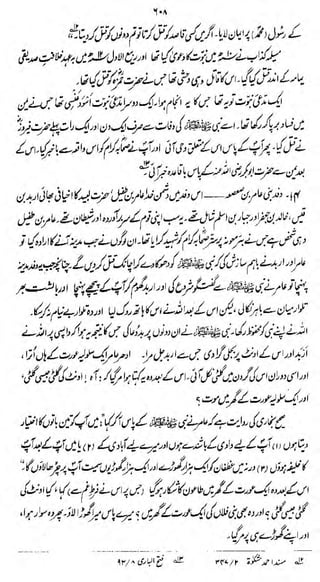 ۶۰۸
کے رسول (محمدؐ) پر ایمان لایا۔ اگر میں کسی قاصد کو قتل کرتا تو تم دونوں کو قتل کر دیتا۔
مسیلمہ کذاب نے ۱۰ھ میں نبوت کا دعویٰ کیا تھا اور ربیع الاول ۱۲ھ میں بعہد خلافت صدیقی
یمامہ کے اندر قتل کیا گیا۔ اس کا قاتل وہی وحشی تھا جس نے حضرت حمزہؓ کو قتل کیا تھا۔
ایک مدعی نبوت تو یہ تھا جس کا یہ انجام ہوا۔ ایک دوسرا مدعی نبوت اسود عنسی تھا جس نے یمن
میں فساد برپا کر رکھا تھا۔ اسے نبی ﷺ کی وفات سے صرف ایک دن اور ایک رات پہلے حضرت فیروزؓ
نے قتل کیا۔ پھر آپ کے پاس اس کے متعلق وحی آئی اور آپ نے صحابہ کرام کو اس واقعہ سے باخبر کیا۔ اس کے
بعد یمن سے حضرت ابوبکر رضی اللہ عنہ کے پاس باقاعدہ خبر آئی۔
۱۴۔ وفد بنی عامر بن صعصعہ — اس وفد میں دشمن خدا عامر بن طفیل، حضرت لبید کا اخیافی بھائی اربد بن
قیس، خالد بن جعفر اور جبار بن اسلم شامل تھے۔ یہ سب اپنی قوم کے سربرآوردہ اور شیطان تھے۔ عامر بن طفیل
وہی شخص ہے جس نے بئر معونہ پر ستر صحابہ کرام کو شہید کرایا تھا۔ ان لوگوں نے جب مدینہ آنے کا ارادہ کیا تو
عامر اور اربد نے باہم سازش کی کہ نبی ﷺ کو دھوکا دے کر اچانک قتل کر دیں گے۔ چنانچہ جب یہ وفد مدینہ
پہنچا تو عامر نے نبی ﷺ سے گفتگو شروع کی اور اربد گھوم کر آپ کے پیچھے پہنچا اور بالشت بھر
تلوار میان سے باہر نکالی، لیکن اس کے بعد اللہ نے اس کا ہاتھ روک لیا اور وہ تلوار بے نیام نہ کر سکا۔
اللہ نے اپنے نبی کو محفوظ رکھا۔ نبی ﷺ نے ان دونوں پر بددعا کی جس کا نتیجہ یہ ہوا کہ واپسی پر اللہ نے
اربد اور اس کے اونٹ پر بجلی گرا دی جس سے اربد جل مرا۔ ادھر عامر ایک سلولیہ عورت کے ہاں اترا،
اور اسی دوران اس کی گردن میں گلٹی نکل آئی۔ اس کے بعد وہ یہ کہتا ہوا مر گیا کہ: آہ! اونٹ کی گلٹی جیسی گلٹی،
اور ایک سلولیہ عورت کے گھر میں موت؟
صحیح بخاری کی روایت ہے کہ عامر نے نبی ﷺ کے پاس آکر کہا "میں آپ کو تین باتوں کا اختیار
دیتا ہوں (۱) آپ کے لیے وادی کے باشندے ہوں اور میرے لیے آبادی کے (۲) یا میں آپ کے بعد آپ
کا خلیفہ ہوؤں (۳) ورنہ میں غطفان کو ایک ہزار گھوڑے اور ایک ہزار گھوڑیوں سمیت آپ پر چڑھا لاؤں گا۔
اس کے بعد وہ ایک عورت کے گھر میں طاعون کا شکار ہو گیا (جس پر اس نے فرط غم سے) کہا، کیا اونٹ کی
گلٹی جیسی گلٹی؟ اور وہ بھی بنی فلاں کی ایک عورت کے گھر میں؟ میرے پاس میرا گھوڑا لاؤ۔ پھر وہ سوار ہوا،
اور اپنے گھوڑے ہی پر مر گیا۔
مسند احمد مشکوٰۃ ۲/۳۴۷ فتح الباری ۸/۹۳